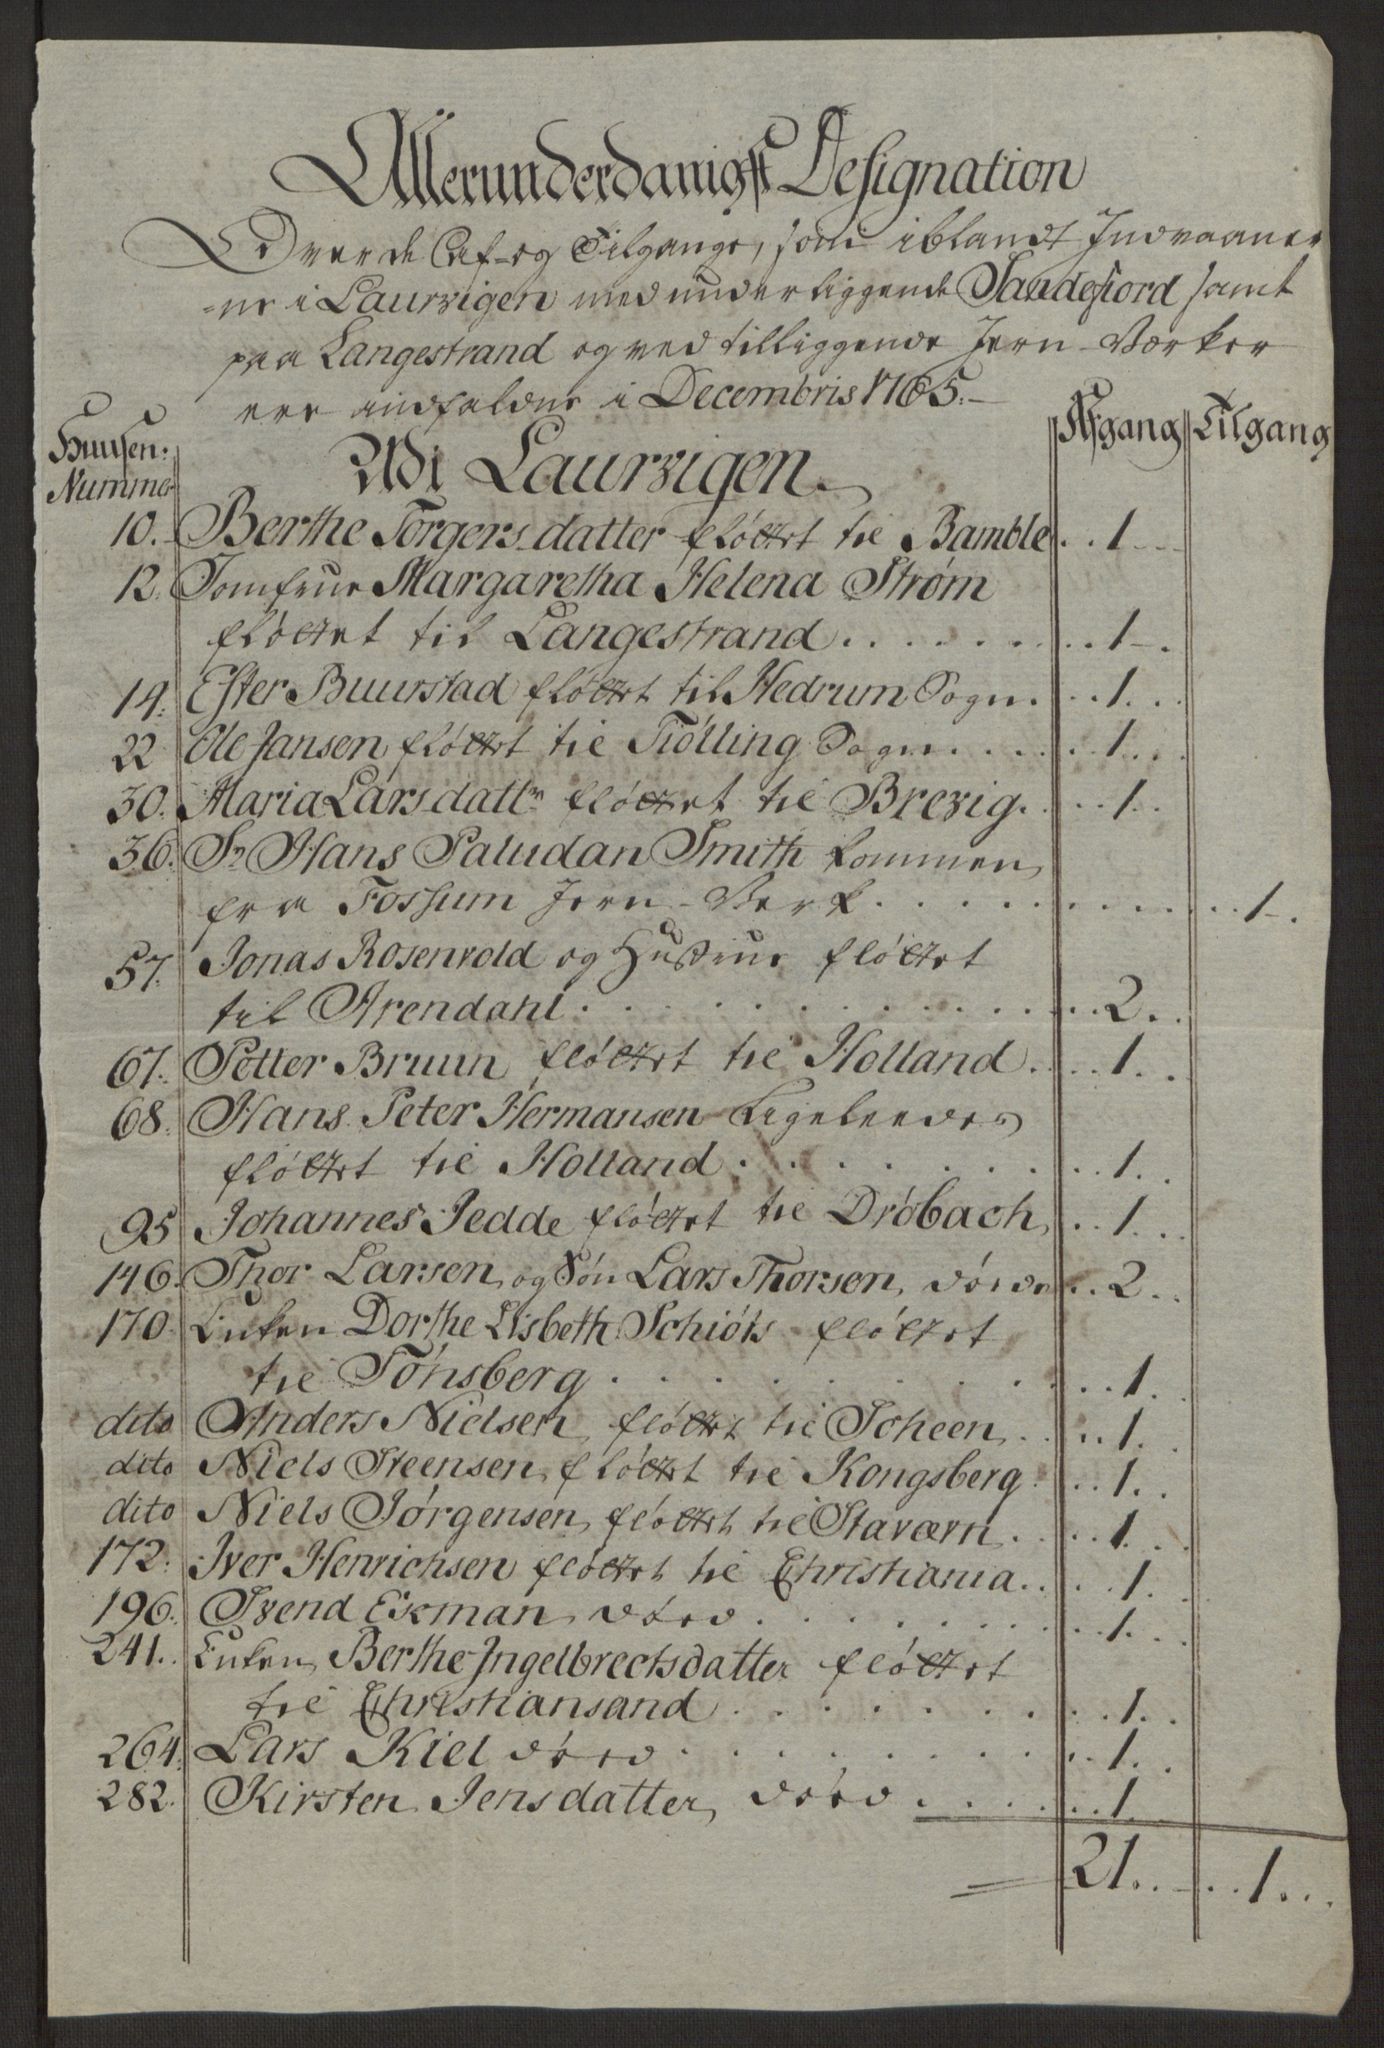 Allerunderdanigst Designation
Over de Af- og Tilgange, som iblandt Indvaaner
=ne i Laurvigen med underliggende Sandefiord samt
paa Langestrand og ved tilliggende Jern-Værker
ere indfaldne i Decembris 1765.
Huusen: Nummer
Udi Laurvigen
Afgang Tilgang
10. Berthe Torgers datter fløttet til Bamble .. 1
12. Jomfrue Margaretha Helena Strøm
fløttet til Langestrand ....... 1
14. Ester Buurstad fløttet til Hedrum Sogn ... 1
22 Ole Jansen fløttet til Tiølling Sogn ..... 1
30. Maria Larsdattr fløttet til Brevig .... 1
36. Sr Hans Paludan Smith kommen
fra Fossum Jern-Verk ......... 1
57. Jonas Rosenvold og Hustrue fløttet
til Arendahl ........ 2
67. Petter Bruun fløttet til Holland .... 1
68. Hans Peter Hermansen ligeleedes
fløttet til Holland ....... 1
95 Johannes Jedde fløttet til Drøbach .. 1
146. Thor Larsen og Søn Lars Thorsen døde .. 2
170. Enken Dorthe Lisbeth Schiøts fløttet
til Tønsberg ........ 1
dito Anders Nielsen fløttet til Scheen .... 1
dito Niels Steensen fløttet til Kongsberg ... 1
dito Niels Jørgensen fløttet til Staværn .... 1
172. Iver Henrichsen fløttet til Christiania .... 1
196. Svend Ekman død ........ 1
241. Enken Berthe Ingelbrectsdatter fløttet
til Christiansand ....... 1
264. Lars Kiel død ........ 1
282. Kirsten Jensdatter død ...... 1
21 .... 1